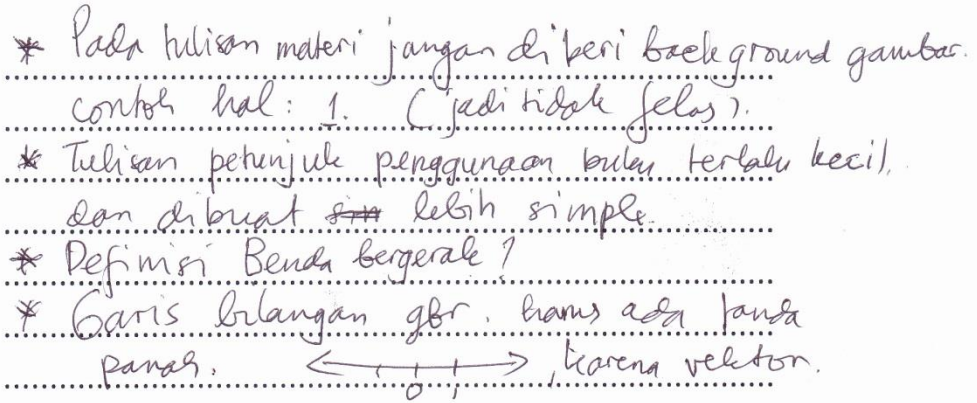 * Pada tulisan materi jangan diberi background gambar.
contoh hal: 1. (jadi tidak jelas).
* Tulisan petunjuk penggunaan buku terlalu kecil.
dan dibuat lebih simple.
* Definisi Benda bergerak?
* Garis bilangan gbr. harus ada tanda
panah. 0 1 , karena vektor.